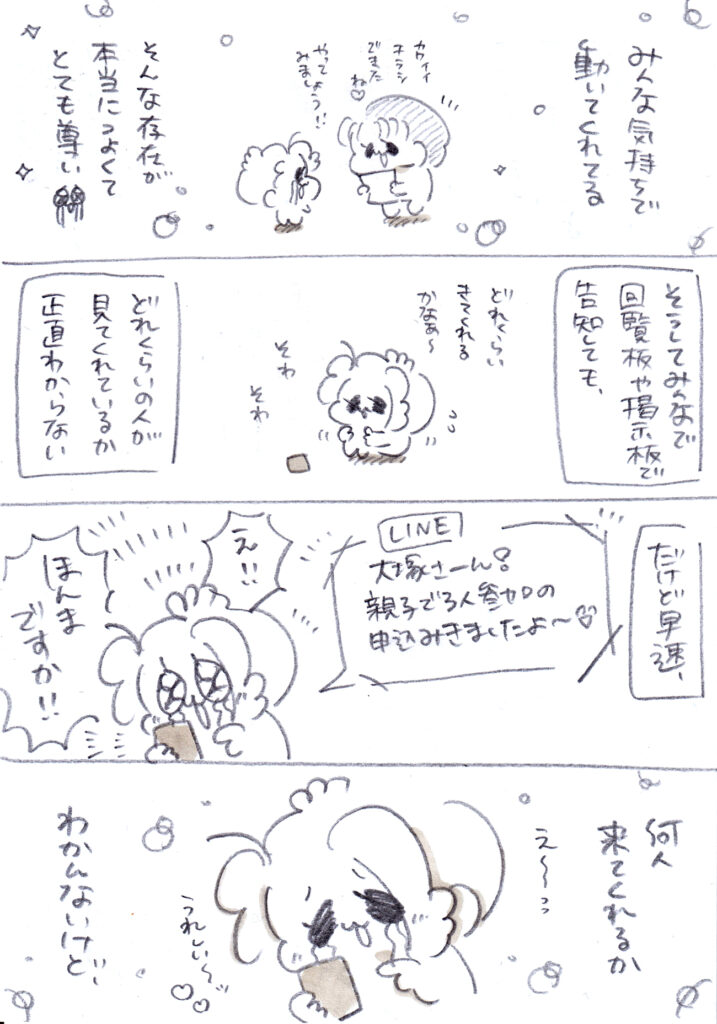 みんな気持ちで
動いてくれてる
カワイイ
チラシ
ですた
ね♡
やってしょう!!
みましょう!!
そんな存在が
本当につよくて
とても尊い
そうしてみんなで
回覧板や掲示板で
告知しても、
どれくらい
きてくれる
かなぁ〜
そわ
そわ
どれくらいの人が
見てくれているか
正直わからない
だけど早速、
LINE
大塚さーん!
親子で3人参加の
申込みきましたよ〜♡
え!!
ほんま
ですか!!
何人
来てくれるか
え〜〜ッッ
うれしい〜
♡♡
わかんないけど、